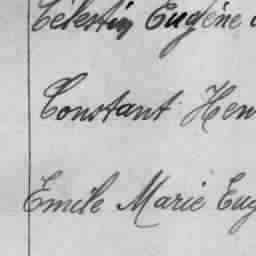 Célestin Eugène
Constant Hen
Emile Marie Eug